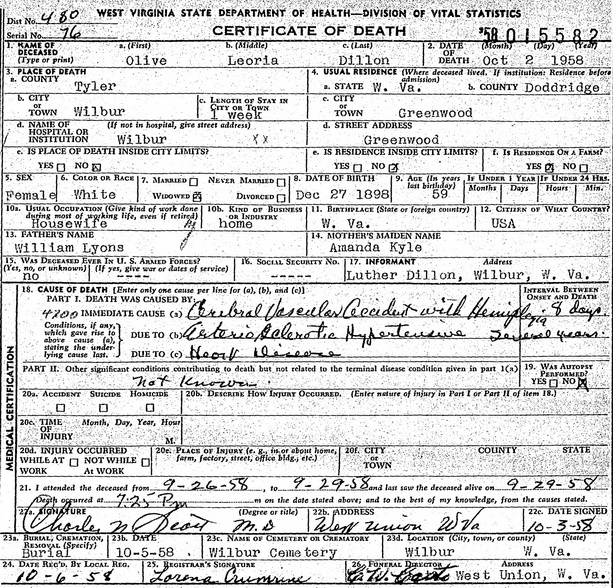 WEST VIRGINIA STATE DEPARTMENT OF HEALTH—DIVISION OF VITAL STATISTICS
Dist No. 480
CERTIFICATE OF DEATH
'58 015582
Serial No. 76
1. NAME OF DECEASED (Type or print)
a. (First) b. (Middle) c. (Last)
Olive Leoria Dillon
2. DATE OF DEATH (Month) (Day) (Year)
Oct 2 1958
3. PLACE OF DEATH
a. COUNTY
Tyler
4. USUAL RESIDENCE (Where deceased lived. If institution: Residence before admission)
a. STATE W. Va. b. COUNTY Doddridge
b. CITY or TOWN Wilbur
c. LENGTH OF STAY IN CITY OR TOWN
1 week
c. CITY or TOWN
Greenwood
d. NAME OF HOSPITAL OR INSTITUTION (If not in hospital, give street address)
Wilbur xx
d. STREET ADDRESS
Greenwood
e. IS PLACE OF DEATH INSIDE CITY LIMITS?
YES NO x
e. IS RESIDENCE INSIDE CITY LIMITS?
YES NO x
f. IS RESIDENCE ON A FARM?
YES x NO
5. SEX
Female
6. COLOR OR RACE
White
7. MARRIED NEVER MARRIED
WIDOWED x DIVORCED
8. DATE OF BIRTH
Dec 27 1898
9. AGE (In years last birthday)
59
IF UNDER 1 YEAR
Months Days
IF UNDER 24 HRS.
Hours Min.
10a. USUAL OCCUPATION (Give kind of work done during most of working life, even if retired)
Housewife
10b. KIND OF BUSINESS OR INDUSTRY
home
11. BIRTHPLACE (State or foreign country)
W. Va.
12. CITIZEN OF WHAT COUNTRY?
USA
13. FATHER'S NAME
William Lyons
14. MOTHER'S MAIDEN NAME
Amanda Kyle
15. WAS DECEASED EVER IN U. S. ARMED FORCES?
(Yes, no, or unknown) (If yes, give war or dates of service)
no -----
16. SOCIAL SECURITY No.
----
17. INFORMANT Address
Luther Dillon, Wilbur, W. Va.
MEDICAL CERTIFICATION
18. CAUSE OF DEATH [Enter only one cause per line for (a), (b), and (c)]
INTERVAL BETWEEN ONSET AND DEATH
PART I. DEATH WAS CAUSED BY:
4200 IMMEDIATE CAUSE (a) Cerebral Vascular Accident with Hemiplegia 8 days
Conditions, if any, which gave rise to above cause (a), stating the underlying cause last.
DUE TO (b) Arterio Sclerotic Hypertensive Several years
DUE TO (c) Heart Disease
PART II. Other significant conditions contributing to death but not related to the terminal disease condition given in part 1(a)
Not Known
19. WAS AUTOPSY PERFORMED?
YES NO x
20a. ACCIDENT SUICIDE HOMICIDE
20b. DESCRIBE HOW INJURY OCCURRED. (Enter nature of injury in Part I or Part II of item 18.)
20c. TIME OF INJURY Month, Day, Year, Hour
M.
20d. INJURY OCCURRED
WHILE AT WORK NOT WHILE AT WORK
20e. PLACE OF INJURY (e. g., in or about home, farm, factory, street, office bldg., etc.)
20f. CITY or TOWN COUNTY STATE
21. I attended the deceased from 9-26-58, to 9-29-58 and last saw the deceased alive on 9-29-58
Death occurred at 7:25 Pm m on the date stated above; and to the best of my knowledge, from the causes stated.
22a. SIGNATURE (Degree or title)
Charles N. Scott M.D
22b. ADDRESS
West Union W Va
22c. DATE SIGNED
10-3-58
23a. BURIAL, CREMATION, REMOVAL (Specify)
Burial
23b. DATE
10-5-58
23c. NAME OF CEMETERY OR CREMATORY
Wilbur Cemetery
23d. LOCATION (City, town, or county) (State)
Wilbur W. Va.
24. DATE REC'D. BY LOCAL REG.
10-6-58
25. REGISTRAR'S SIGNATURE
Lorena Crumrine
26. FUNERAL DIRECTOR Address
West Union, W. Va.